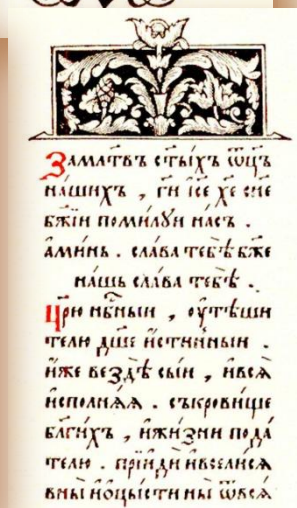 За мл҃твъ ст҃ы́хъ ѿц҃ъ
на́шихъ , гн҃ и҆се҃ хе҃ сн҃е
бж҃їи поми́лꙋи на́съ .
а҆ми́нь . сла́ва тебѣ̀ бж҃е
на́шь сла́ва тебѣ̀ .
Цр҃ю нб҃ныи , ᲂу҆тѣ́ши
телю дш҃е и҆́стинныи .
и҆́же вездѣ̀ сы́и , и҆ вся҄
и҆сполня́я . съкро́вище
бл҃ги́хъ , и҆ жи́зни пода́
телю . прїидѝ и҆ всели́ся
в ны̀ и҆ ѡ҆цы́сти ны̀ ѿ вся́